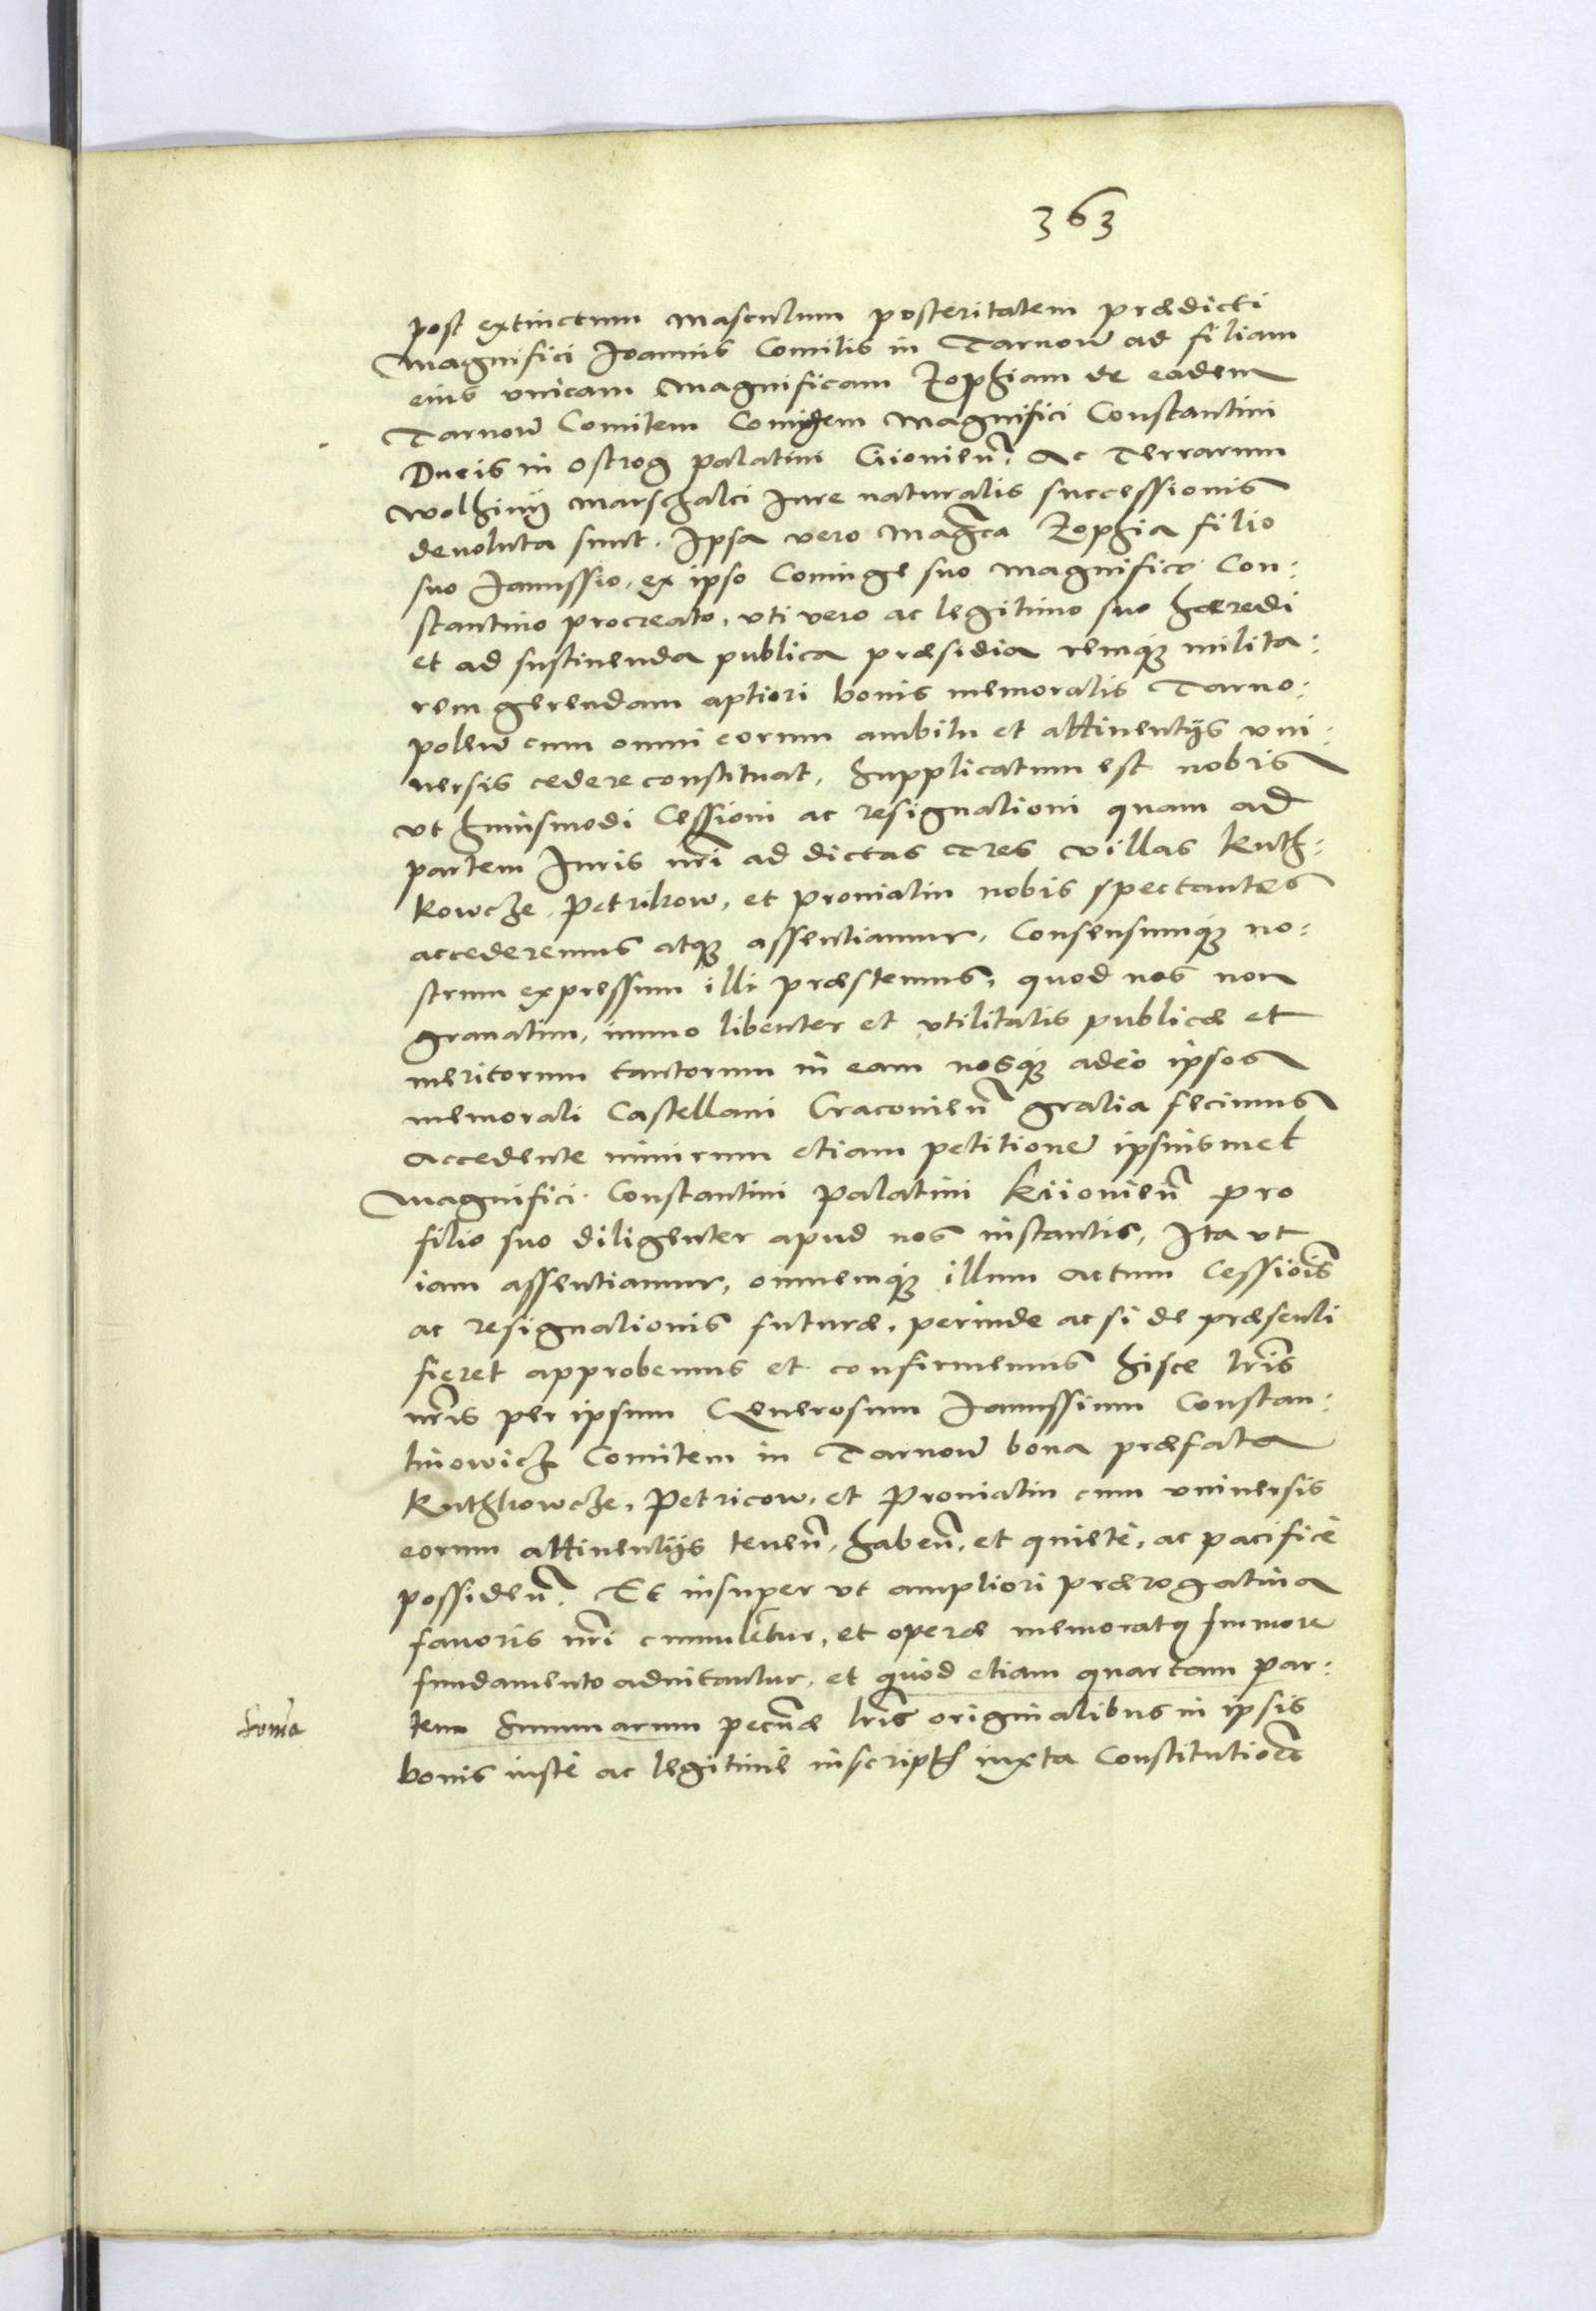 363
post extinctum masculum posteritatem prædicti
Magnifici Joannis Comitis in Tarnow ad filiam
eius vnicam Magnificam Zophiam de eadem
Tarnow Comitem Coniugem Magnifici Constantini
Ducis in Ostrog palatini Giiouien̄. Ac Terrarum
wolhinij Marschalci Jure naturalis successionis
deuoluta sunt. Ipsa vero Magca Zophia filio
suo Janussio, ex ipso Coniuge suo magnifico Con:
stantino procreato, vti vero ac legitimo suo hæredi
et ad sustinenda publica præsidia remq3 milita:
rem gerendam aptiori bonis memoratis Tarno:
polem cum omni eorum ambitu et attinentijs vni:
uersis cedere constituat, Supplicatum est nobis
vt huiusmodi Cessioni ac resignationi quam ad
partem Juris nri ad dictas tres villas Kuth:
kowcze, Petrikow, et proniatin nobis spectantes
accederemus atq3 assentiamur, Consensumq3 no:
strum expressum illi præstemus, quod nos non
grauatim, immo libenter et vtilitatis publicæ et
meritorum tantorum in eam nosq3 adeo ipsos
memorati Castellani Cracouien̄ gratia fecimus
accedente nimirum etiam petitione ipsiusmet
Magnifici Constantini palatini Kiiouien̄ pro
filio suo diligenter apud nos instantis, Ita vt
iam assentiamur, omnemq3 illum actum Cessiois
ac resignationis futuræ, perinde ac si de præsenti
fieret approbemus et confirmemus hisce lris
nris per ipsum Generosum Janussium Constan:
tinowicz Comitem in Tarnow bona præfata
Kuthkowcze, Petricow, et Proniatin cum vniuersis
eorum attinentijs tenen̄, haben̄, et quietè, ac pacificè
possiden̄. Et insuper vt ampliori prærogatiua
fauoris nri cumuletur, et operæ memoratq
fundamento adnitantur, et quòd etiam quartam par:
Som̄a
tem Summarum pecun̄æ lris originalibus in ipsis
bonis iustè ac legitimè inscript iuxta Constitutioes